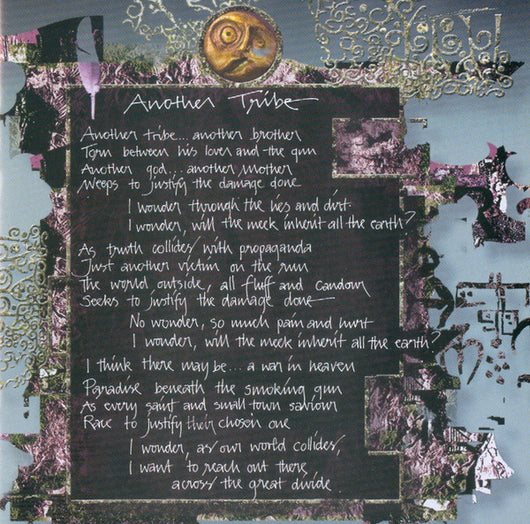 Another Tribe
Another tribe... another brother
Torn between his lover and the gun
Another god... another mother
Weeps to justify the damage done
I wonder through the lies and dirt
I wonder, will the meek inherit all the earth?
As truth collides with propaganda
Just another victim on the run
The world outside, all fluff and candour
Seeks to justify the damage done
No wonder, so much pain and hurt
I wonder, will the meek inherit all the earth?
I think there may be... a war in heaven
Paradise beneath the smoking gun
As every saint and small-town saviour
Race to justify their chosen one
I wonder, as our world collides,
I want to reach out there
across the great divide